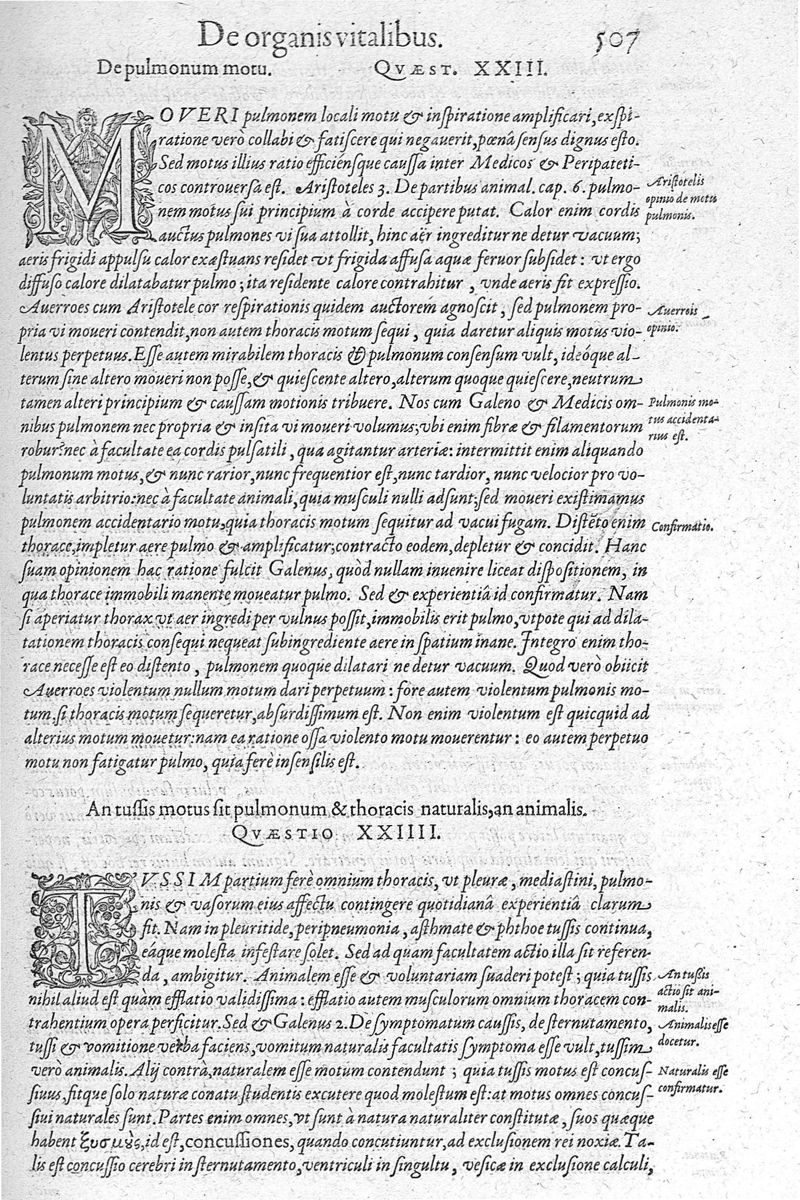 De organis vitalibus. 507
De pulmonum motu. QVÆST. XXIII.
MOVERI pulmonem locali motu & inspiratione amplificari, exspi-
ratione verò collabi & fatiscere qui negauerit, pœnâ sensus dignus esto.
Sed motus illius ratio efficiénsque caussa inter Medicos & Peripateti-
cos controuersa est. Aristoteles 3. De partibus animal. cap. 6. pulmo-
nem motus sui principium à corde accipere putat. Calor enim cordis
auctus pulmones vi sua attollit, hinc aër ingreditur ne detur vacuum;
aeris frigidi appulsu calor exæstuans residet vt frigida affusa aquæ feruor subsidet: vt ergo
diffuso calore dilatabatur pulmo; ita residente calore contrahitur, vnde aeris fit expressio.
Auerroes cum Aristotele cor respirationis quidem auctorem agnoscit, sed pulmonem pro-
pria vi moueri contendit, non autem thoracis motum sequi, quia daretur aliquis motus vio-
lentus perpetuus. Esse autem mirabilem thoracis & pulmonum consensum vult, ideóque al-
terum sine altero moueri non posse, & quiescente altero, alterum quoque quiescere, neutrum
tamen alteri principium & caussam motionis tribuere. Nos cum Galeno & Medicis om-
nibus pulmonem nec propria & insita vi moueri volumus; vbi enim fibræ & filamentorum
robur? nec à facultate ea cordis pulsatili, qua agitantur arteriæ: intermittit enim aliquando
pulmonum motus, & nunc rarior, nunc frequentior est, nunc tardior, nunc velocior pro vo-
luntatis arbitrio: nec à facultate animali, quia musculi nulli adsunt; sed moueri existimamus
pulmonem accidentario motu, quia thoracis motum sequitur ad vacui fugam. Distēto enim
thorace, impletur aere pulmo & amplificatur; contracto eodem, depletur & concidit. Hanc
suam opinionem hac ratione fulcit Galenus, quòd nullam inuenire liceat dispositionem, in
qua thorace immobili manente moueatur pulmo. Sed & experientiâ id confirmatur. Nam
si aperiatur thorax vt aer ingredi per vulnus possit, immobilis erit pulmo, vtpote qui ad dila-
tationem thoracis consequi nequeat subingrediente aere in spatium inane. Integro enim tho-
race necesse est eo distento, pulmonem quoque dilatari ne detur vacuum. Quod verò obiicit
Auerroes violentum nullum motum dari perpetuum: fore autem violentum pulmonis mo-
tum, si thoracis motum sequeretur, absurdissimum est. Non enim violentum est quicquid ad
alterius motum mouetur: nam ea ratione ossa violento motu mouerentur: eo autem perpetuo
motu non fatigatur pulmo, quia ferè insensilis est.
Aristotelis
opinio de motu
pulmonis.
Auerrois
opinio.
Pulmonis mo-
tus accidenta-
rius est.
Confirmatio.
An tussis motus sit pulmonum & thoracis naturalis, an animalis.
QVÆSTIO XXIIII.
TVSSIM partium ferè omnium thoracis, vt pleuræ, mediastini, pulmo-
nis & vasorum eius affectu contingere quotidianâ experientiâ clarum
fit. Nam in pleuritide, peripneumonia, asthmate & phthoe tussis continua,
eáque molesta infestare solet. Sed ad quam facultatem actio illa sit referen-
da, ambigitur. Animalem esse & voluntariam suaderi potest; quia tussis
nihil aliud est quàm efflatio validissima: efflatio autem musculorum omnium thoracem con-
trahentium opera perficitur. Sed & Galenus 2. De symptomatum caussis, de sternutamento,
tussi & vomitione verba faciens, vomitum naturalis facultatis symptoma esse vult, tussim
verò animalis. Alij contrà, naturalem esse motum contendunt; quia tussis motus est concus-
siuus, fitque solo naturæ conatu studentis excutere quod molestum est: at motus omnes concus-
siui naturales sunt. Partes enim omnes, vt sunt à natura naturaliter constitutæ, suos quæque
habent ξυσμοὺς, id est, concussiones, quando concutiuntur, ad exclusionem rei noxiæ. Ta-
lis est concussio cerebri in sternutamento, ventriculi in singultu, vesicæ in exclusione calculi,
An tussis
actio sit ani-
malis.
Animalis esse
docetur.
Naturalis esse
confirmatur.